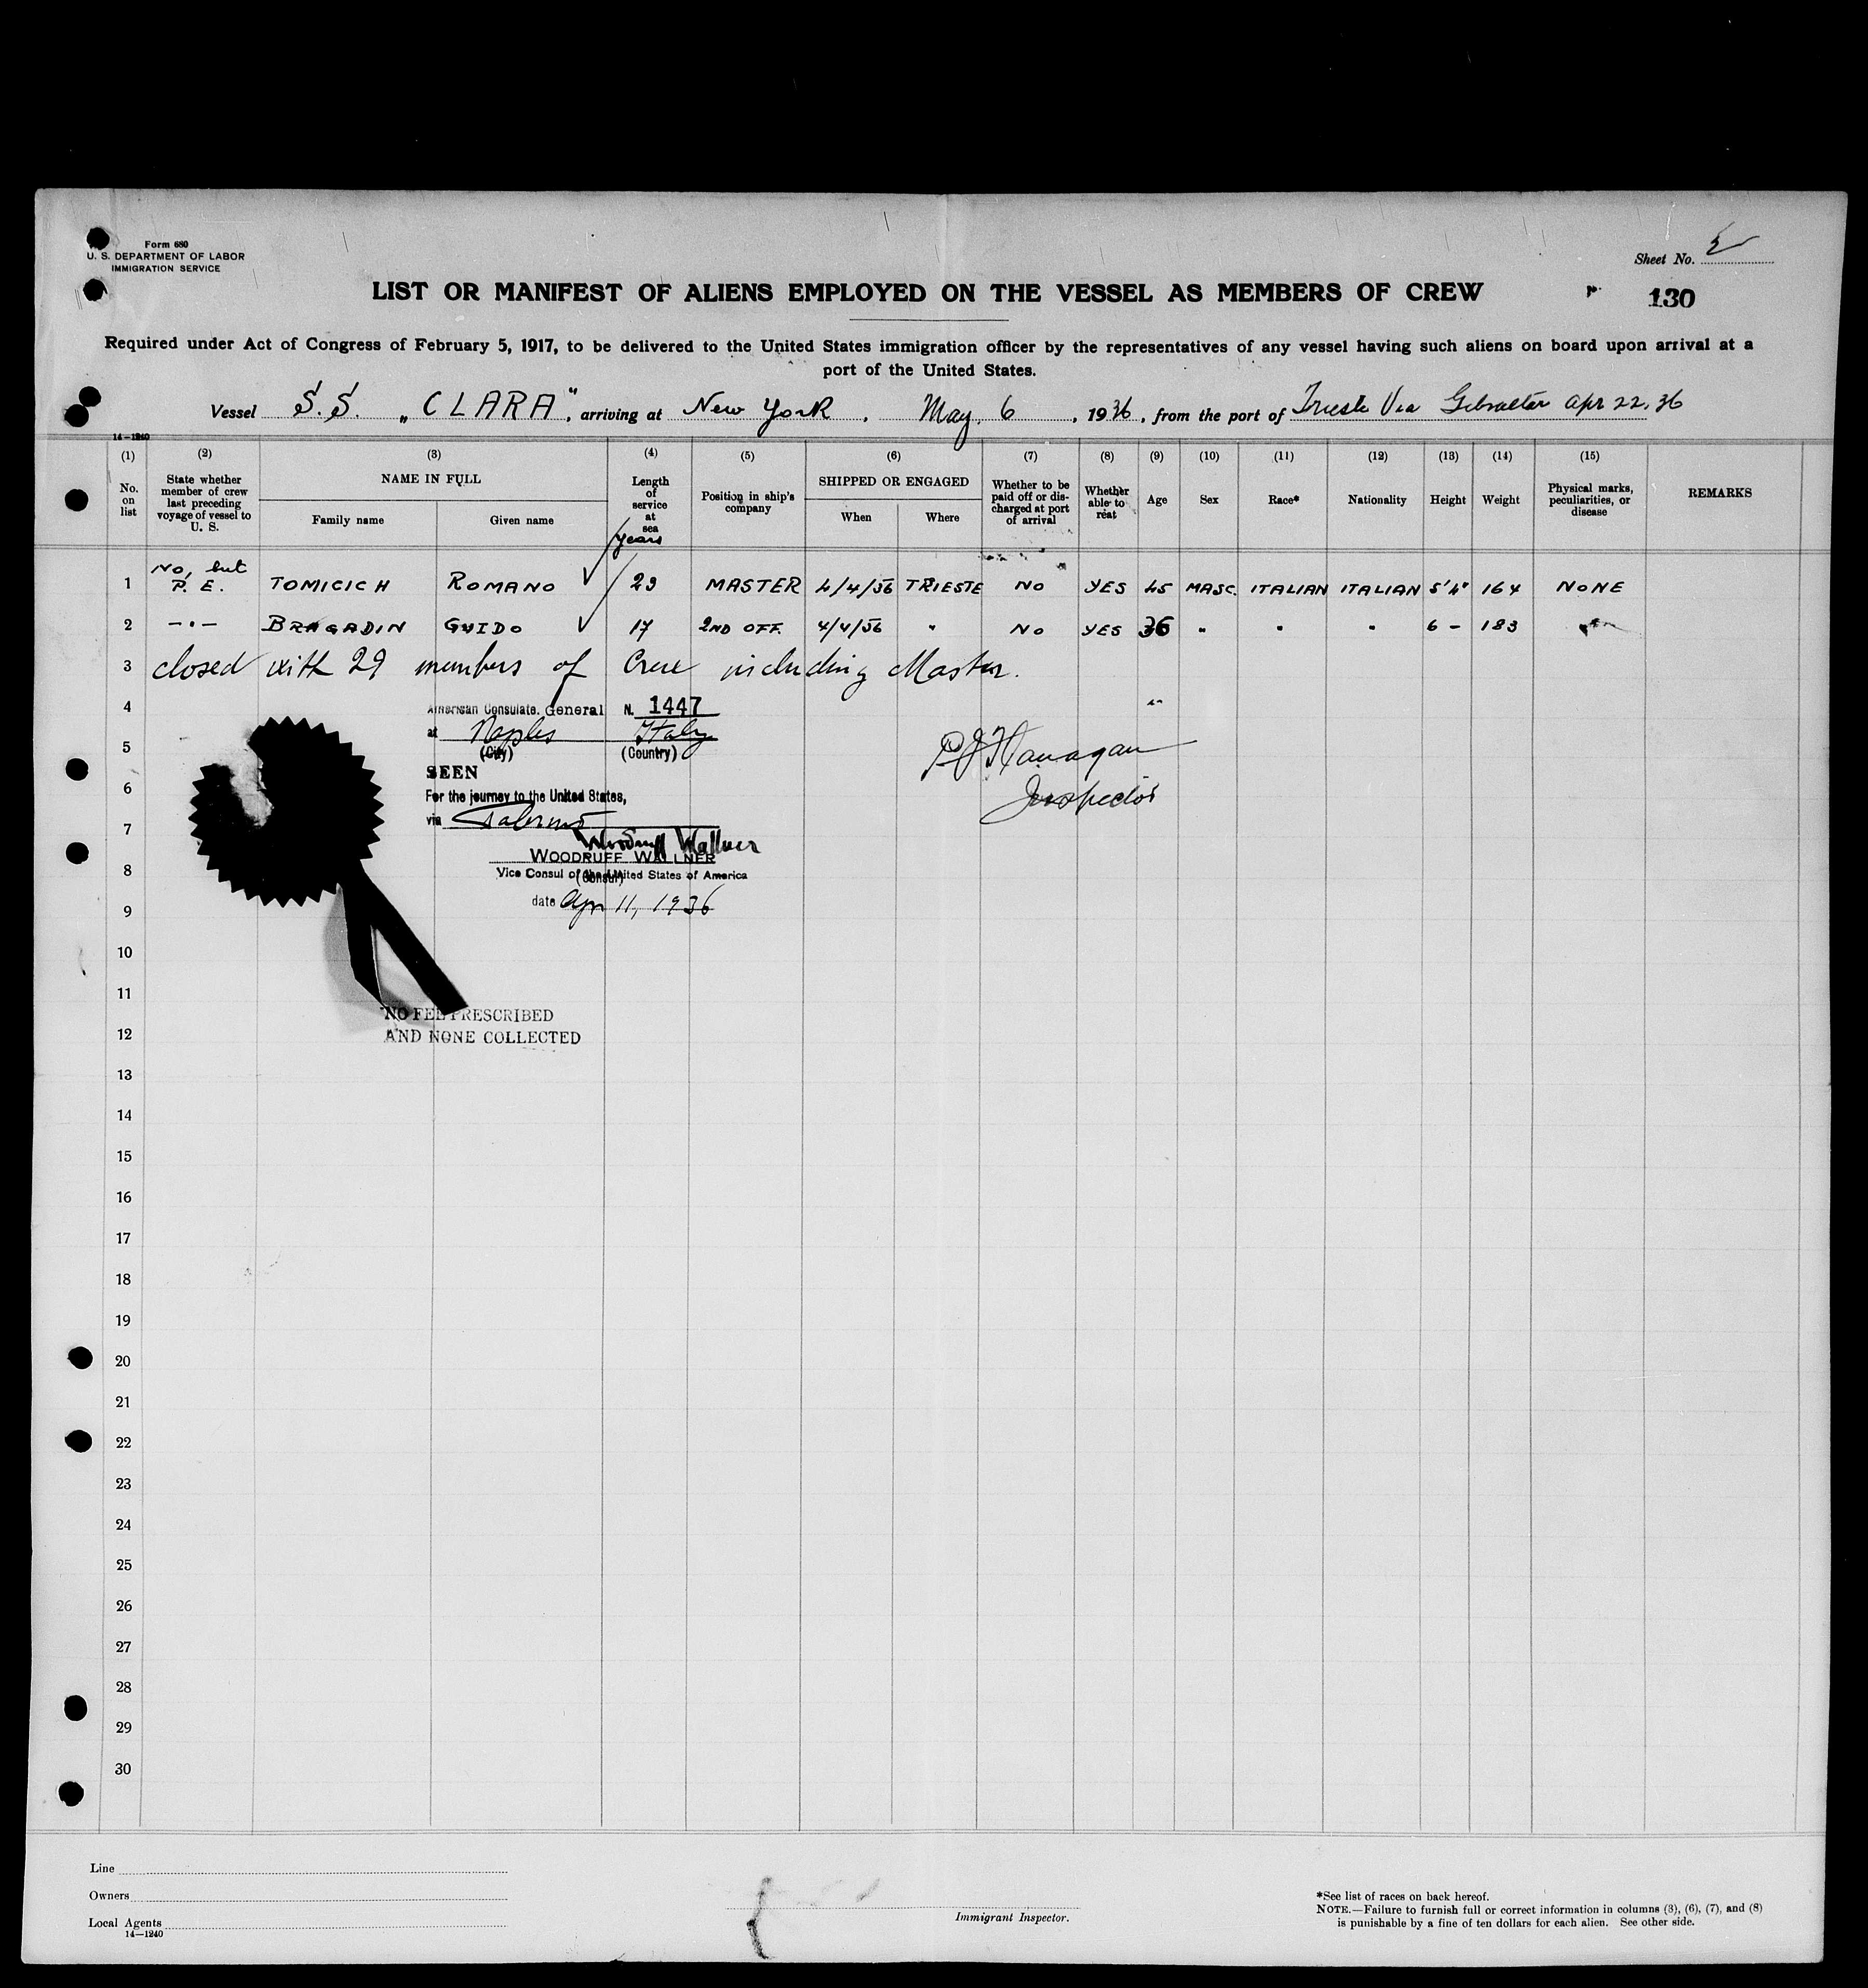 Form 680
U. S. DEPARTMENT OF LABOR
IMMIGRATION SERVICE
Sheet No. 2
LIST OR MANIFEST OF ALIENS EMPLOYED ON THE VESSEL AS MEMBERS OF CREW
130
Required under Act of Congress of February 5, 1917, to be delivered to the United States immigration officer by the representatives of any vessel having such aliens on board upon arrival at a
port of the United States.
Vessel S.S. „CLARA", arriving at New York, May 6, 1936, from the port of Trieste Via Gibraltar Apr 22, 36
14-1240
(1) (2) (3) (4) (5) (6) (7) (8) (9) (10) (11) (12) (13) (14) (15)
No. on list
State whether member of crew last preceding voyage of vessel to U. S.
NAME IN FULL
Family name Given name
Length of service at sea
years
Position in ship's company
SHIPPED OR ENGAGED
When Where
Whether to be paid off or discharged at port of arrival
Whether able to read
Age
Sex
Race*
Nationality
Height
Weight
Physical marks, peculiarities, or disease
REMARKS
1 No, but P. E. TOMICICH ROMANO 29 MASTER 4/4/36 TRIESTE NO YES 45 MASC. ITALIAN ITALIAN 5'4" 164 NONE
2 -"- BRAGADIN GUIDO 17 2ND OFF. 4/4/36 " NO YES 36 " " " 6 - 183 "
3 closed with 29 members of Crew including Master.
4
5
6
7
8
9
10
11
12
13
14
15
16
17
18
19
20
21
22
23
24
25
26
27
28
29
30
American Consulate. General N. 1447
at Naples Italy
(City) (Country)
SEEN
For the journey to the United States,
via Palermo
Woodruff Wallner
WOODRUFF WALLNER
Vice Consul of the United States of America
(Consul)
date Apr 11, 1936
P J Flanagan
Inspector
NO FEE PRESCRIBED
AND NONE COLLECTED
Line
Owners
Local Agents
14-1240
Immigrant Inspector.
*See list of races on back hereof.
NOTE.—Failure to furnish full or correct information in columns (3), (6), (7), and (8)
is punishable by a fine of ten dollars for each alien. See other side.